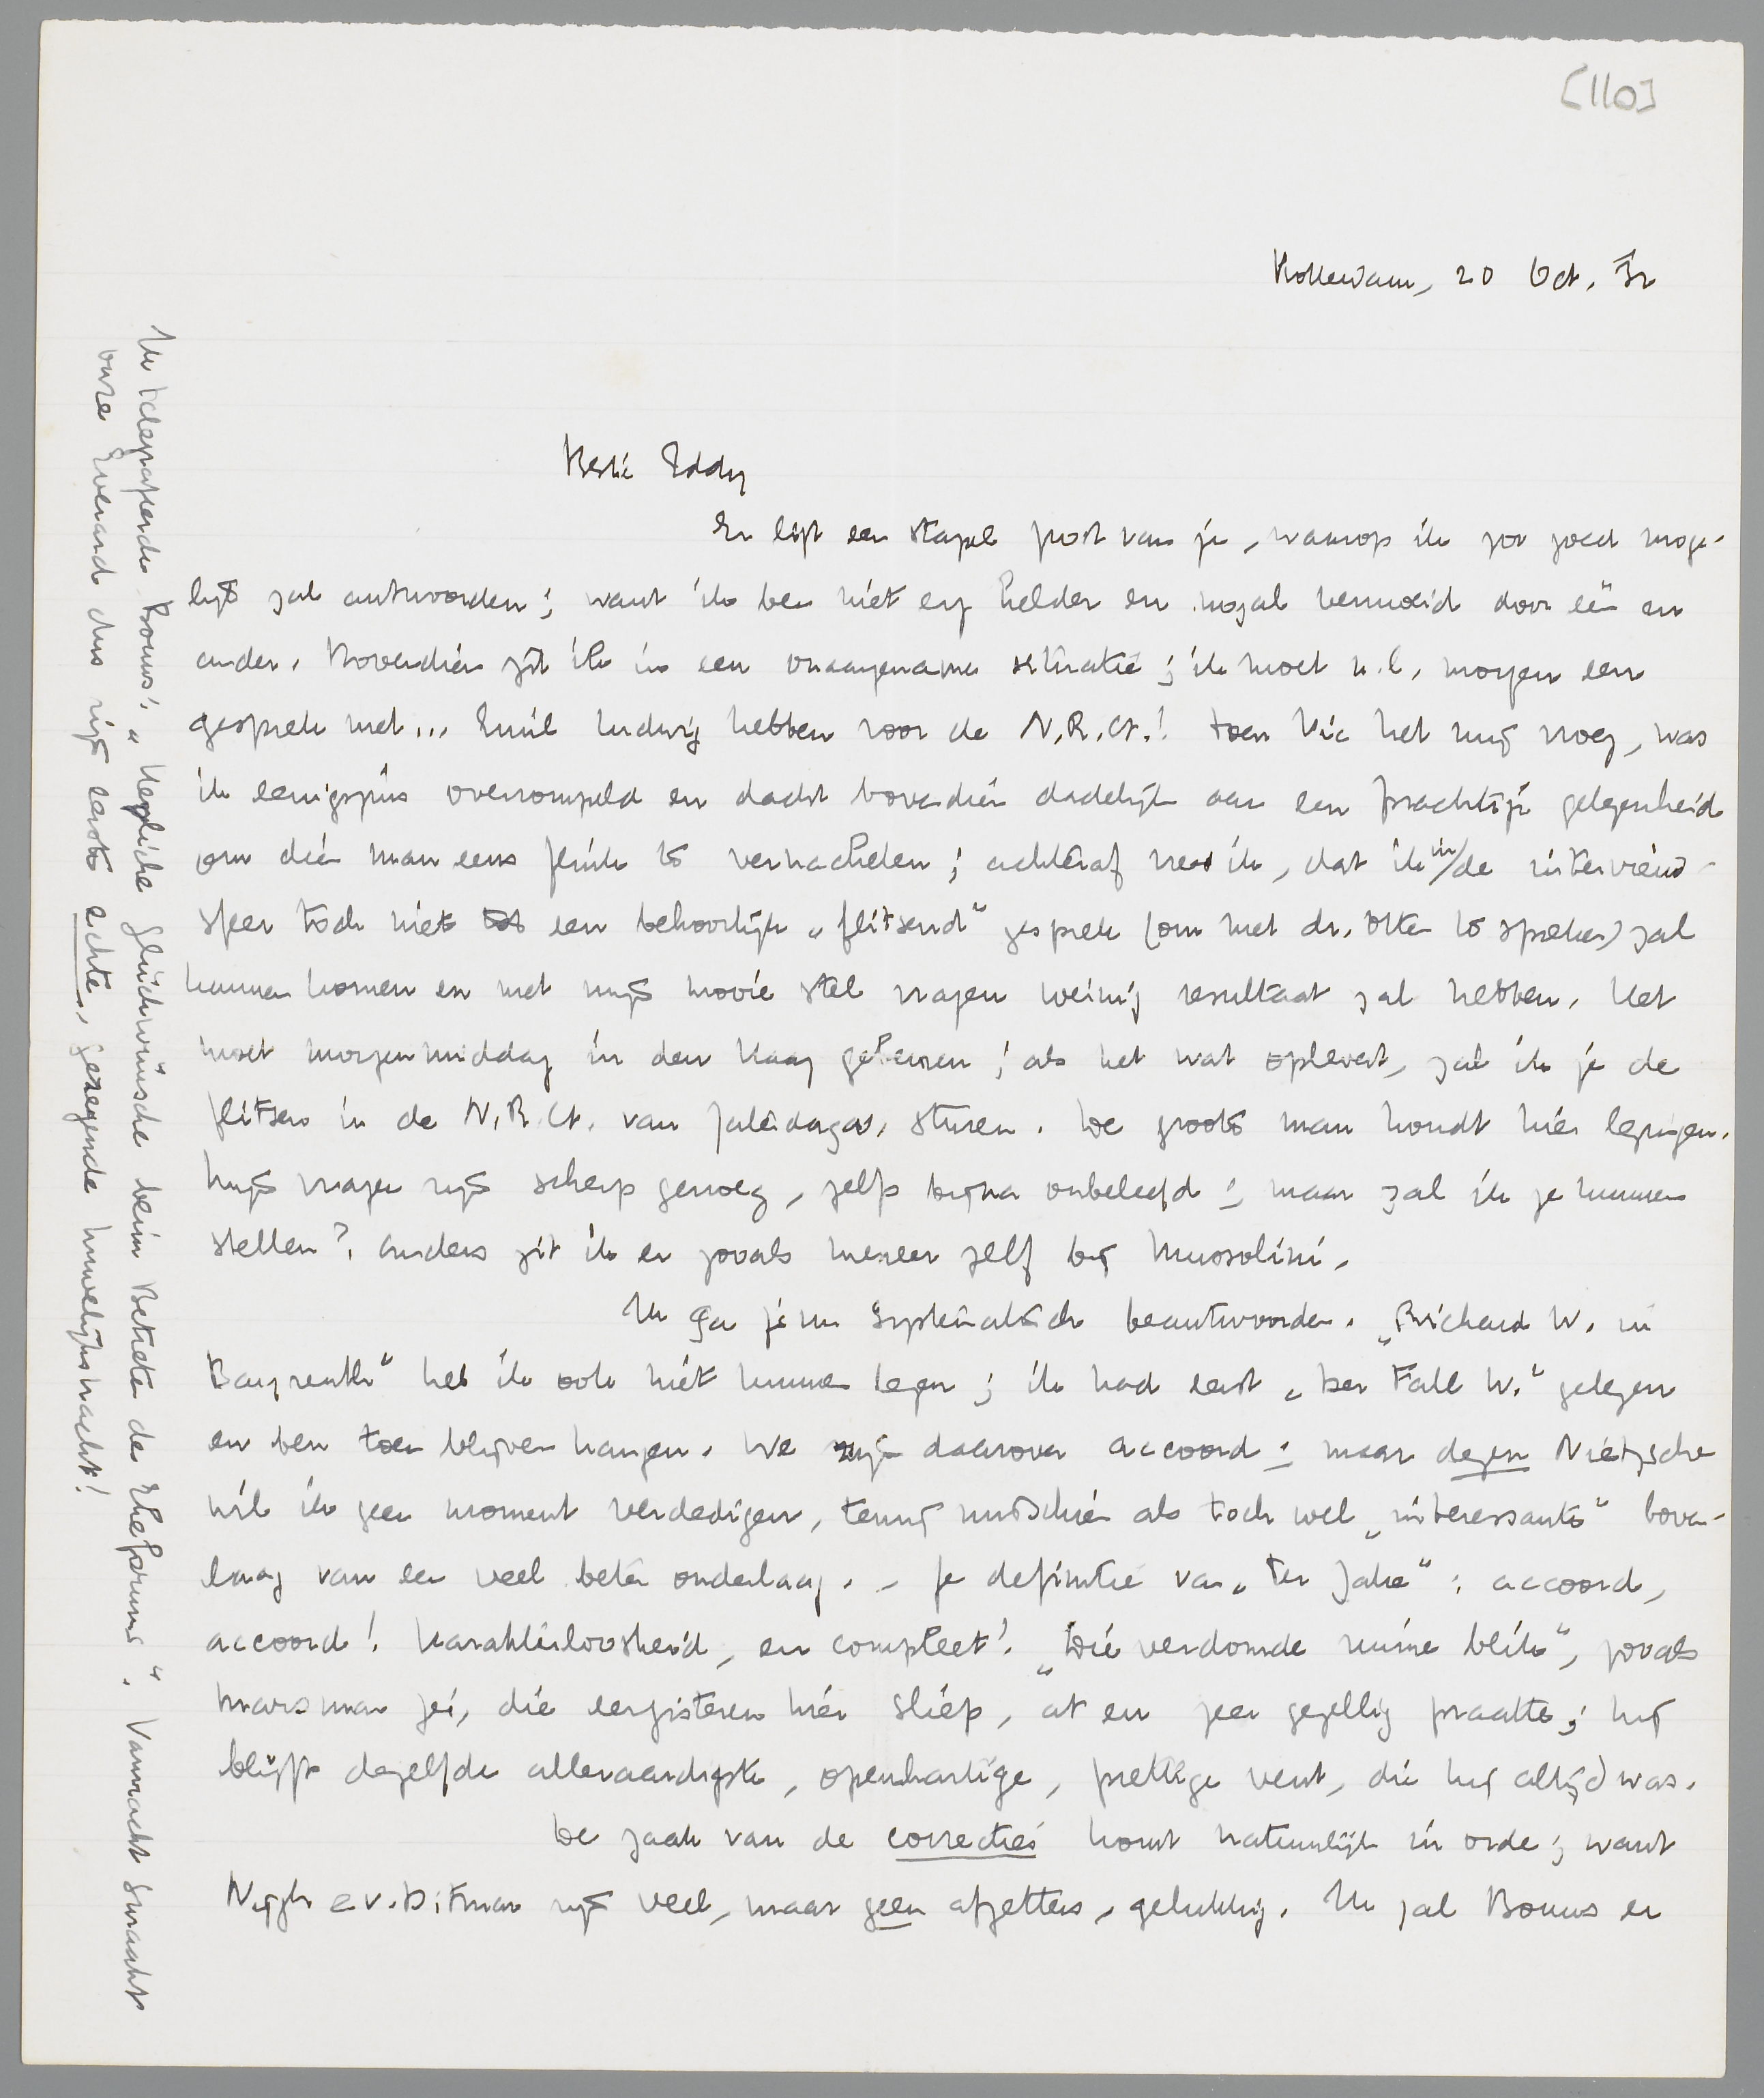 [110]
Rotterdam, 20 Oct. '32
Beste Eddy
Er ligt een stapel post van je, waarop ik zoo goed moge-
lijk zal antwoorden; want ik ben niet erg helder en nogal vermoeid door één en
ander. Bovendien zit ik in een onaangename situatie; ik moet n.l. morgen een
gesprek met... Emil Ludwig hebben voor de N.R.Ct.! Toen Vic het mij vroeg, was
ik eenigszins overrompeld en dacht bovendien dadelijk aan een prachtige gelegenheid
om dien man eens flink te verrachelen; achteraf vrees ik, dat ik in de interview-
sfeer toch niet tot een behoorlijk „flitsend" gesprek (om met dr. Otten te spreken) zal
kunnen komen en met mijn mooie stel vragen weinig resultaat zal hebben. Het
moet morgenmiddag in den Haag gebeuren; als het wat oplevert, zal ik je de
flitsen in de N.R.Ct. van Zaterdagav. sturen. De groote man houdt hier lezingen.
Mijn vragen zijn scherp genoeg, zelfs bijna onbeleefd; maar zal ik ze kunnen
stellen? Anders zit ik er zooals meneer zelf bij Mussolini.
Ik ga je nu systematisch beantwoorden. „Richard W. in
Bayreuth" heb ik ook niet kunnen lezen; ik had eerst „Der Fall W." gelezen
en ben toen blijven hangen. We zijn daarover accoord; maar dezen Nietzsche
wil ik geen moment verdedigen, tenzij misschien als toch wel „interessante" boven-
laag van een veel beter onderlaag. – Je definitie van „Ter Zake": accoord,
accoord! Karakterloosheid, en compleet! „Die verdomde ruime blik", zooals
Marsman zei, die eergisteren hier sliep, at en zeer gezellig praatte; hij
blijft dezelfde allervaardigste, openhartige, prettige vent, die hij altijd was.
De zaak van de correcties komt natuurlijk in orde; want
Nijgh e v. Ditmar zijn veel, maar geen afzetters, gelukkig. Ik zal Bouws er
Ik telegrafeerde Bouws: „Herzliche Glückwünsche beim Betreten der Eheform". Vannacht smaakt
onze Everard dus zijn eerste echte, gezegende huwelijksnacht!